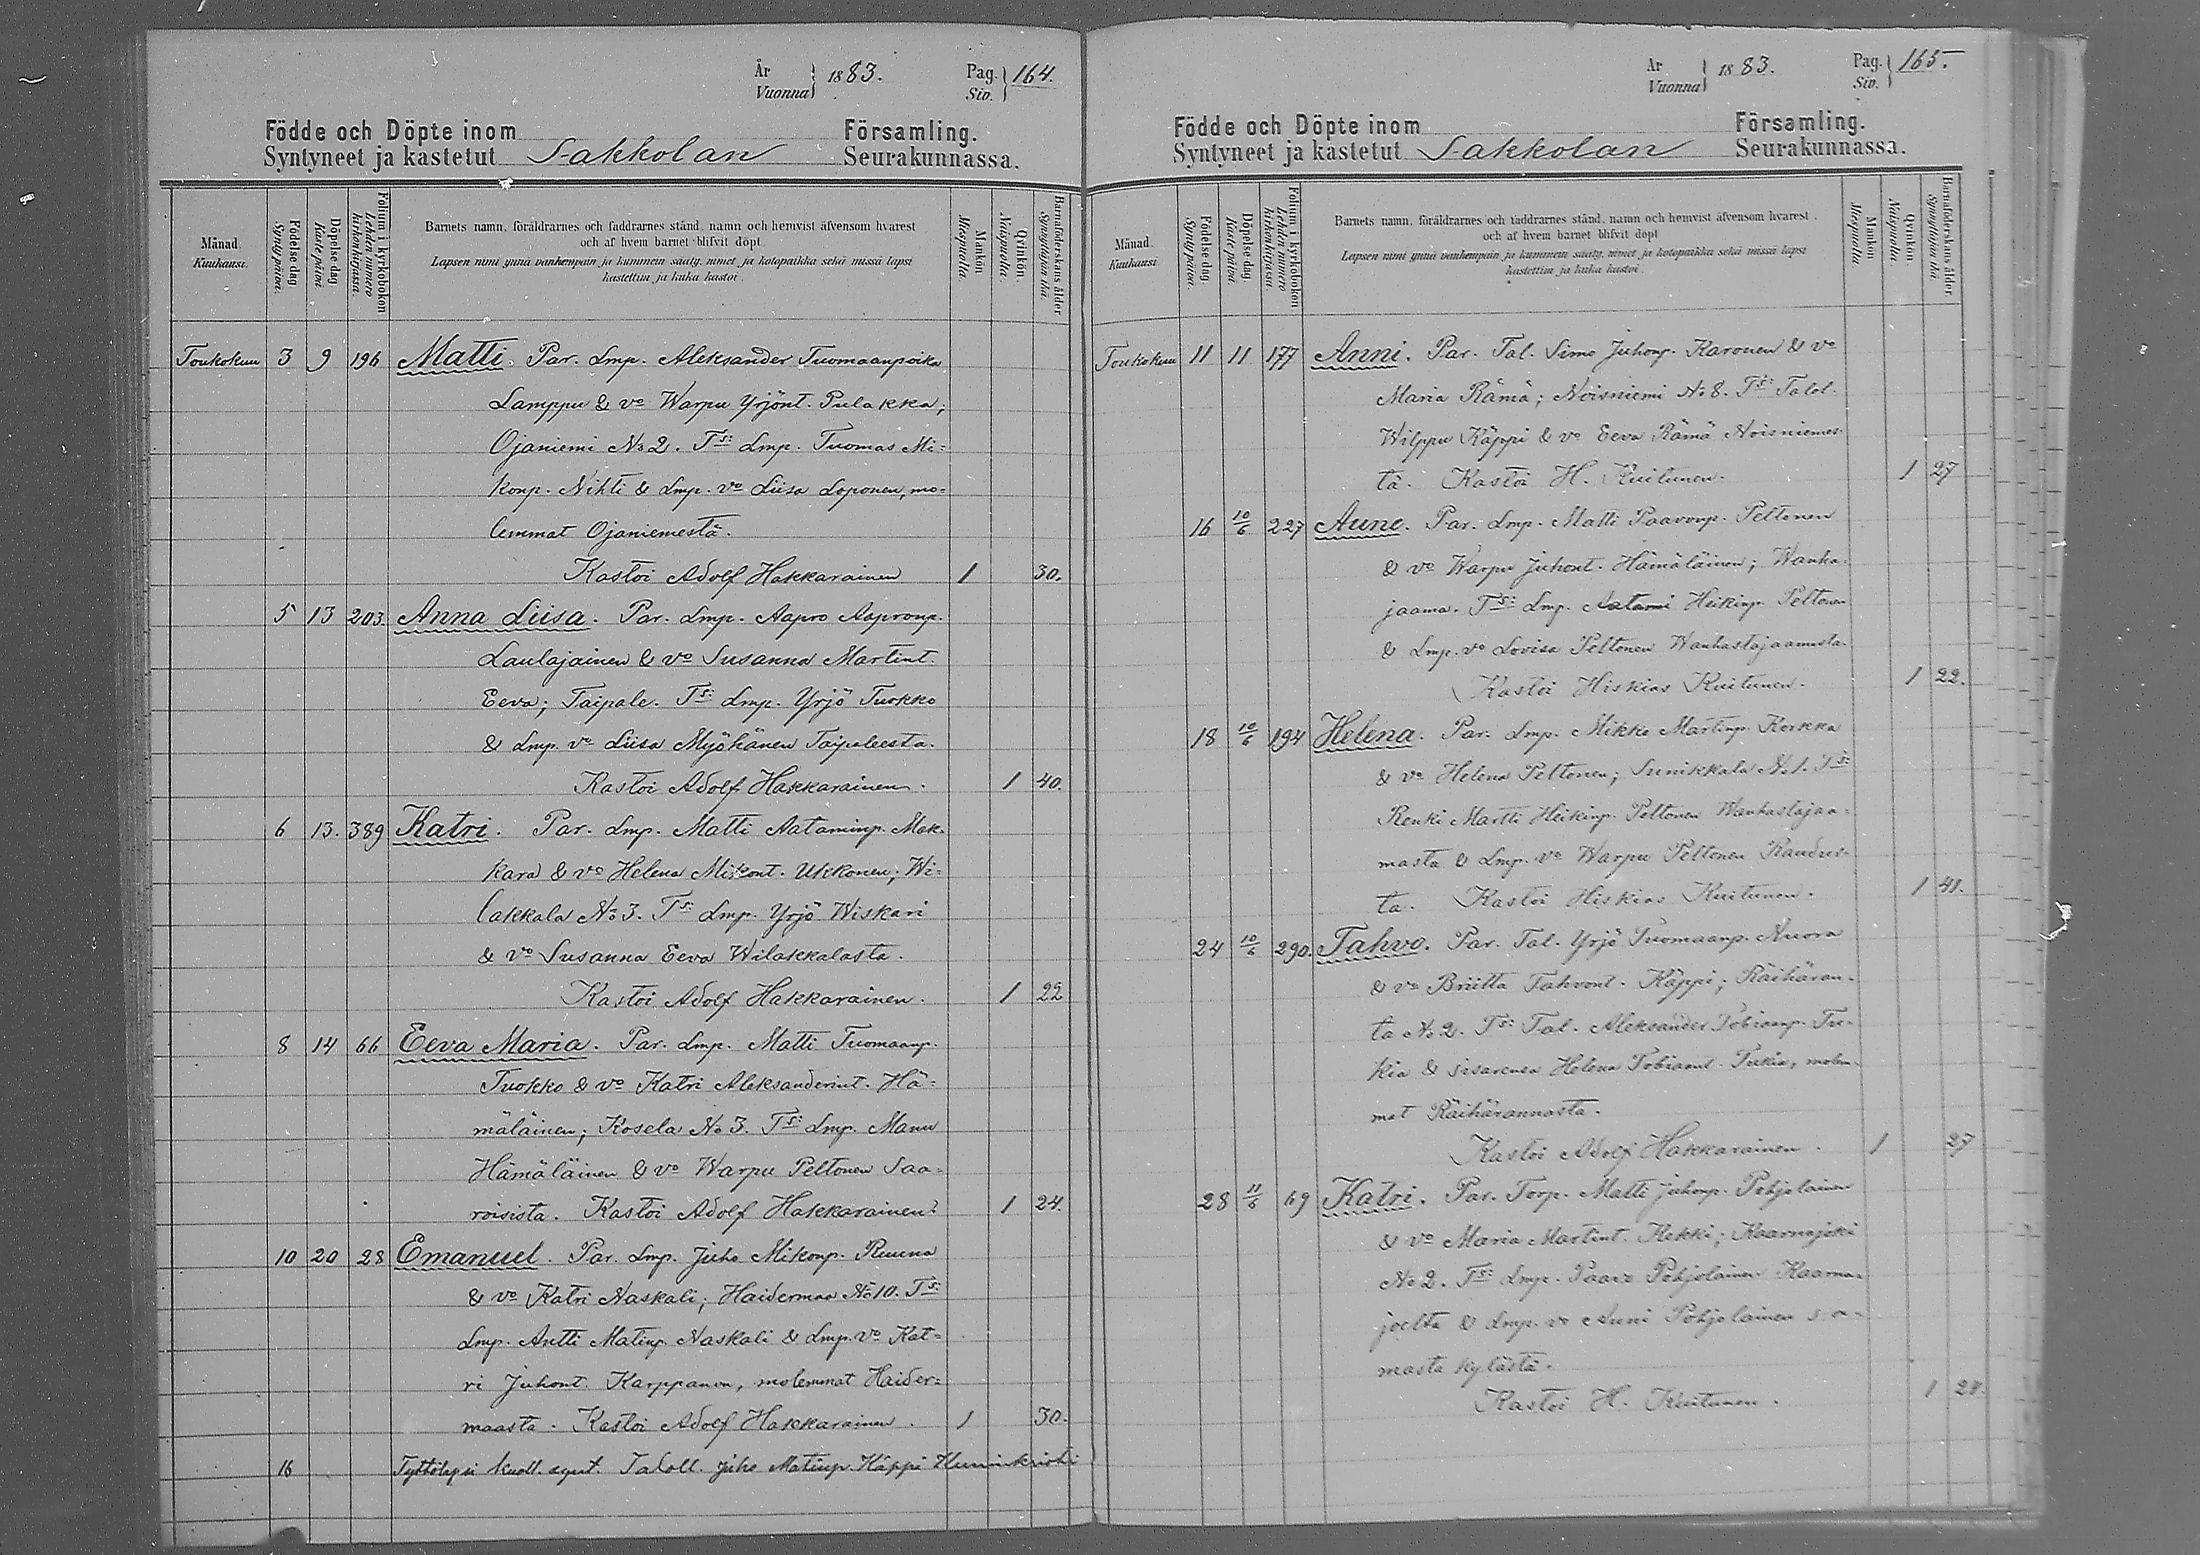 År
Vuonna } 1883. Pag.
Siv. } 164.
Födde och Döpte inom Församling.
Syntyneet ja kastetut Sakkolan Seurakunnassa.
Månad. Kuukausi.
Födelsedag. Syntypäivä.
Döpelsedag. Kastepäivä.
Folium i kyrkoboken. Lehden numero kirkonkirjassa.
Barnets namn, föräldrarnes och faddrarnes stånd, namn och hemvist äfvensom hvarest
och af hvem barnet blifvit döpt.
Lapsen nimi ynnä vanhempain ja kummein sääty, nimet ja kotopaikka sekä missä lapsi
kastettiin ja kuka kastoi.
Mankön. Miespuolia.
Qvinkön. Naispuolia.
Barnaföderskans ålder. Synnyttäjän ikä.
Toukokuu 3 9 196 Matti. Par. Lmp. Aleksander Tuomaanpoika
Lamppu & vo Warpu Yrjönt. Pulakka;
Ojaniemi No 2. Ts: Lmp. Tuomas Mi=
konp. Nihti & Lmp. vo Liisa Loponen, mo=
lemmat Ojaniemestä.
Kastoi Adolf Hakkarainen 1 30.
5 13 203. Anna Liisa. Par. Lmp. Aapro Aapronp.
Laulajainen & vo Susanna Martint.
Eeva; Taipale. Ts: Lmp. Yrjö Tuokko
& Lmp. vo Liisa Myöhänen Taipaleesta.
Kastoi Adolf Hakkarainen. 1 40.
6 13. 389 Katri. Par. Lmp. Matti Aataminp. Mak=
kara & vo Helena Mikont. Ukkonen; Wi=
lakkala No 3. Ts: Lmp. Yrjö Wiskari
& vo Susanna Eeva Wilakkalasta.
Kastoi Adolf Hakkarainen. 1 22
8 14 66 Eeva Maria. Par. Lmp. Matti Tuomaanp.
Tuokko & vo Katri Aleksanderint. Hä=
mäläinen; Kosela No 3. Ts: Lmp. Manu
Hämäläinen & vo Warpu Peltonen Saa=
roisista. Kastoi Adolf Hakkarainen. 1 24.
10 20 28 Emanuel. Par. Lmp. Juho Mikonp. Ruuna
& vo Katri Naskali; Haidermaa No 10. Ts:
Lmp. Antti Matinp. Naskali & Lmp. vo Kat=
ri Juhont. Karppanen, molemmat Haider=
maasta. Kastoi Adolf Hakkarainen. 1 30.
16 Tyttölapsi kuoll. synt. Taloll. Juho Matinp. Käppi
År
Vuonna } 1883. Pag.
Siv. } 165.
Födde och Döpte inom Församling.
Syntyneet ja kastetut Sakkolan Seurakunnassa.
Månad. Kuukausi.
Födelsedag. Syntypäivä.
Döpelsedag. Kastepäivä.
Folium i kyrkoboken. Lehden numero kirkonkirjassa.
Barnets namn, föräldrarnes och faddrarnes stånd, namn och hemvist äfvensom hvarest
och af hvem barnet blifvit döpt.
Lapsen nimi ynnä vanhempain ja kummein sääty, nimet ja kotopaikka sekä missä lapsi
kastettiin ja kuka kastoi.
Mankön. Miespuolia.
Qvinkön. Naispuolia.
Barnaföderskans ålder. Synnyttäjän ikä.
Toukokuu 11 11 177 Anni. Par. Tal. Simo Juhonp. Karonen & vo
Maria Rämä; Noisniemi No 8. Ts: Talol.
Wilppu Käppi & vo Eeva Rämä Noisniemes=
tä. Kastoi H. Kuitunen. 1 27
16 10/6 227 Aune. Par. Lmp. Matti Paavonp. Peltonen
& vo Warpu Juhont. Hämäläinen; Wanha=
jaama. Ts: Lmp. Aatami Heikinp. Peltonen
& Lmp. vo Lovisa Peltonen Wanhastajaamasta.
Kastoi Hiskias Kuitunen. 1 22.
18 10/6 194 Helena. Par. Lmp. Mikko Martinp. Korkka
& vo Helena Peltonen; Sunikkala No 1. Ts:
Renki Martti Heikinp. Peltonen Wanhastajaa=
masta & Lmp. vo Warpu Peltonen Raudus=
ta. Kastoi Hiskias Kuitunen. 1 41.
24 10/6 290. Tahvo. Par. Tal. Yrjö Tuomaanp. Nuora
& vo Briitta Tahvont. Käppi; Räihäran=
ta No 2. Ts: Tal. Aleksander Tobiaanp. Tu=
kia & sisarensa Helena Tobiaant. Tukia, molem=
mat Räihärannasta.
Kastoi Adolf Hakkarainen. 1 27
28 11/6 69 Katri. Par. Torp. Matti Juhonp. Pohjolainen
& vo Maria Martint. Kekki; Kaarnajoki
No 2. Ts: Lmp. Paavo Pohjolainen Kaarna=
joelta & Lmp. vo Anni Pohjolainen sa=
masta kylästä.
Kastoi H. Kuitunen. 1